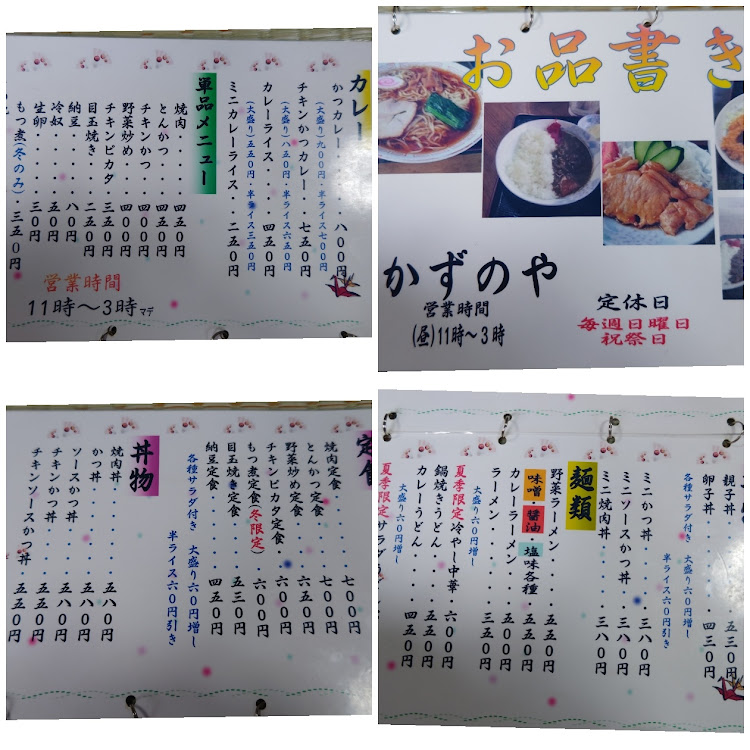 カレー
かつカレー・・・・・八〇〇円
(大盛り)九〇〇円・半ライス七〇〇円
チキンかつカレー・・七五〇円
(大盛り)八五〇円・半ライス六五〇円
カレーライス・・・・四五〇円
(大盛り)五五〇円・半ライス三五〇円
ミニカレーライス・・二五〇円
単品メニュー
焼肉・・・・・四五〇円
とんかつ・・・四五〇円
チキンかつ・・四〇〇円
野菜炒め・・・四〇〇円
チキンピカタ・三五〇円
目玉焼き・・・二五〇円
納豆・・・・・八〇円
冷奴・・・・・五〇円
生卵・・・・・三〇円
もつ煮(冬のみ)・三五〇円
営業時間
11時～3時マデ
お品書き
かずのや
営業時間
(昼)11時～3時
定休日
毎週日曜日
祝祭日
定食
焼肉定食・・・・七〇〇円
とんかつ定食・・七〇〇円
野菜炒め定食・・六五〇円
チキンピカタ定食・六〇〇円
もつ煮定食(冬限定)六〇〇円
目玉焼き定食・・五三〇円
納豆定食・・・・四五〇円
各種サラダ付き 大盛り六〇円増し
半ライス六〇円引き
丼物
焼肉丼・・・・・五八〇円
かつ丼・・・・・五八〇円
ソースかつ丼・・五八〇円
チキンかつ丼・・五五〇円
チキンソースかつ丼 五五〇円
親子丼・・・・・五三〇円
卵子丼・・・・・四三〇円
各種サラダ付き 大盛り六〇円増し
半ライス六〇円引き
ミニかつ丼・・・・三八〇円
ミニソースかつ丼・・三八〇円
ミニ焼肉丼・・・・三八〇円
麺類
野菜ラーメン・・・五五〇円
味噌・醤油・塩味各種
カレーラーメン・・五五〇円
ラーメン・・・・・三五〇円
大盛り六〇円増し
夏季限定冷やし中華・六〇〇円
鍋焼きうどん・・・五五〇円
カレーうどん・・・四五〇円
大盛り六〇円増し
夏季限定サラダ